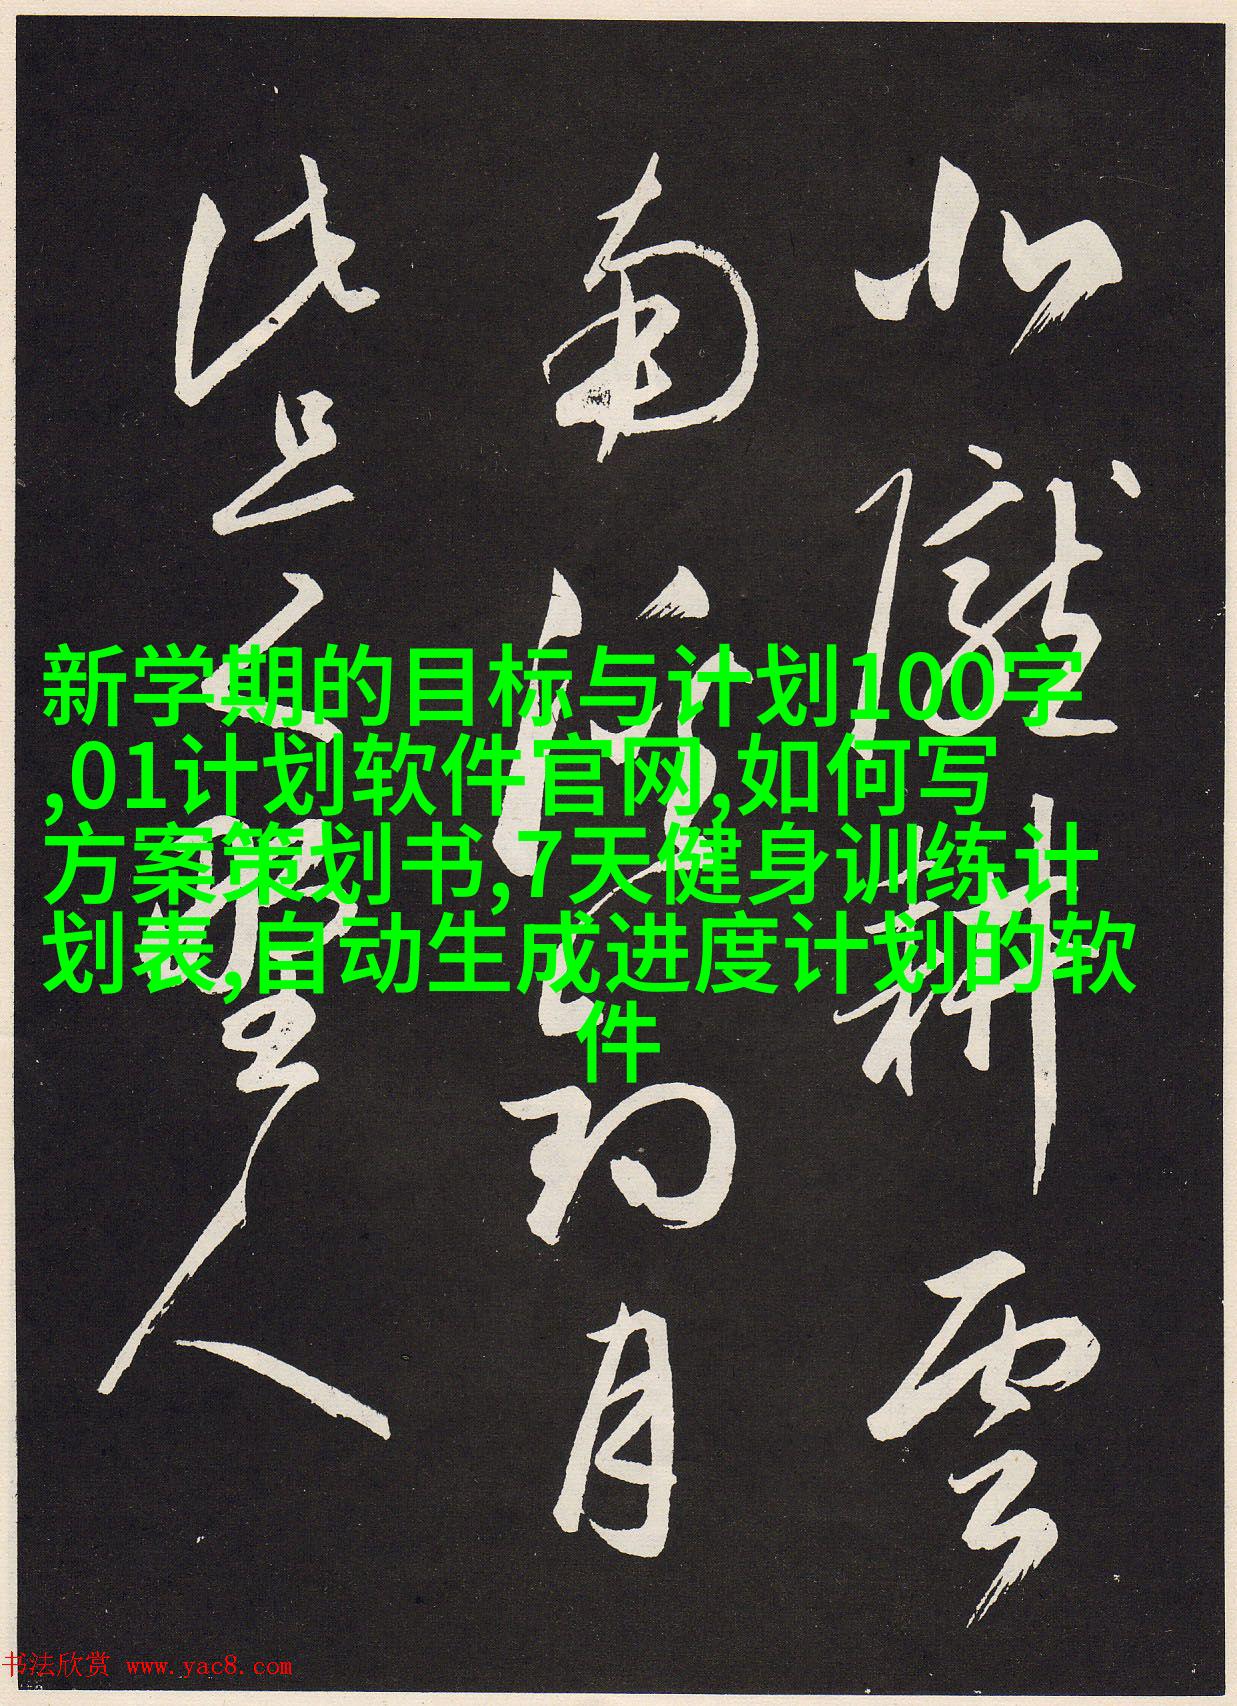 北隴耕雲
南
釣月
此且
聖人
新学期的目标与计划100字
,01计划软件官网,如何写
方案策划书,7天健身训练计
划表,自动生成进度计划的软
件
书法欣赏 www.yac8.com